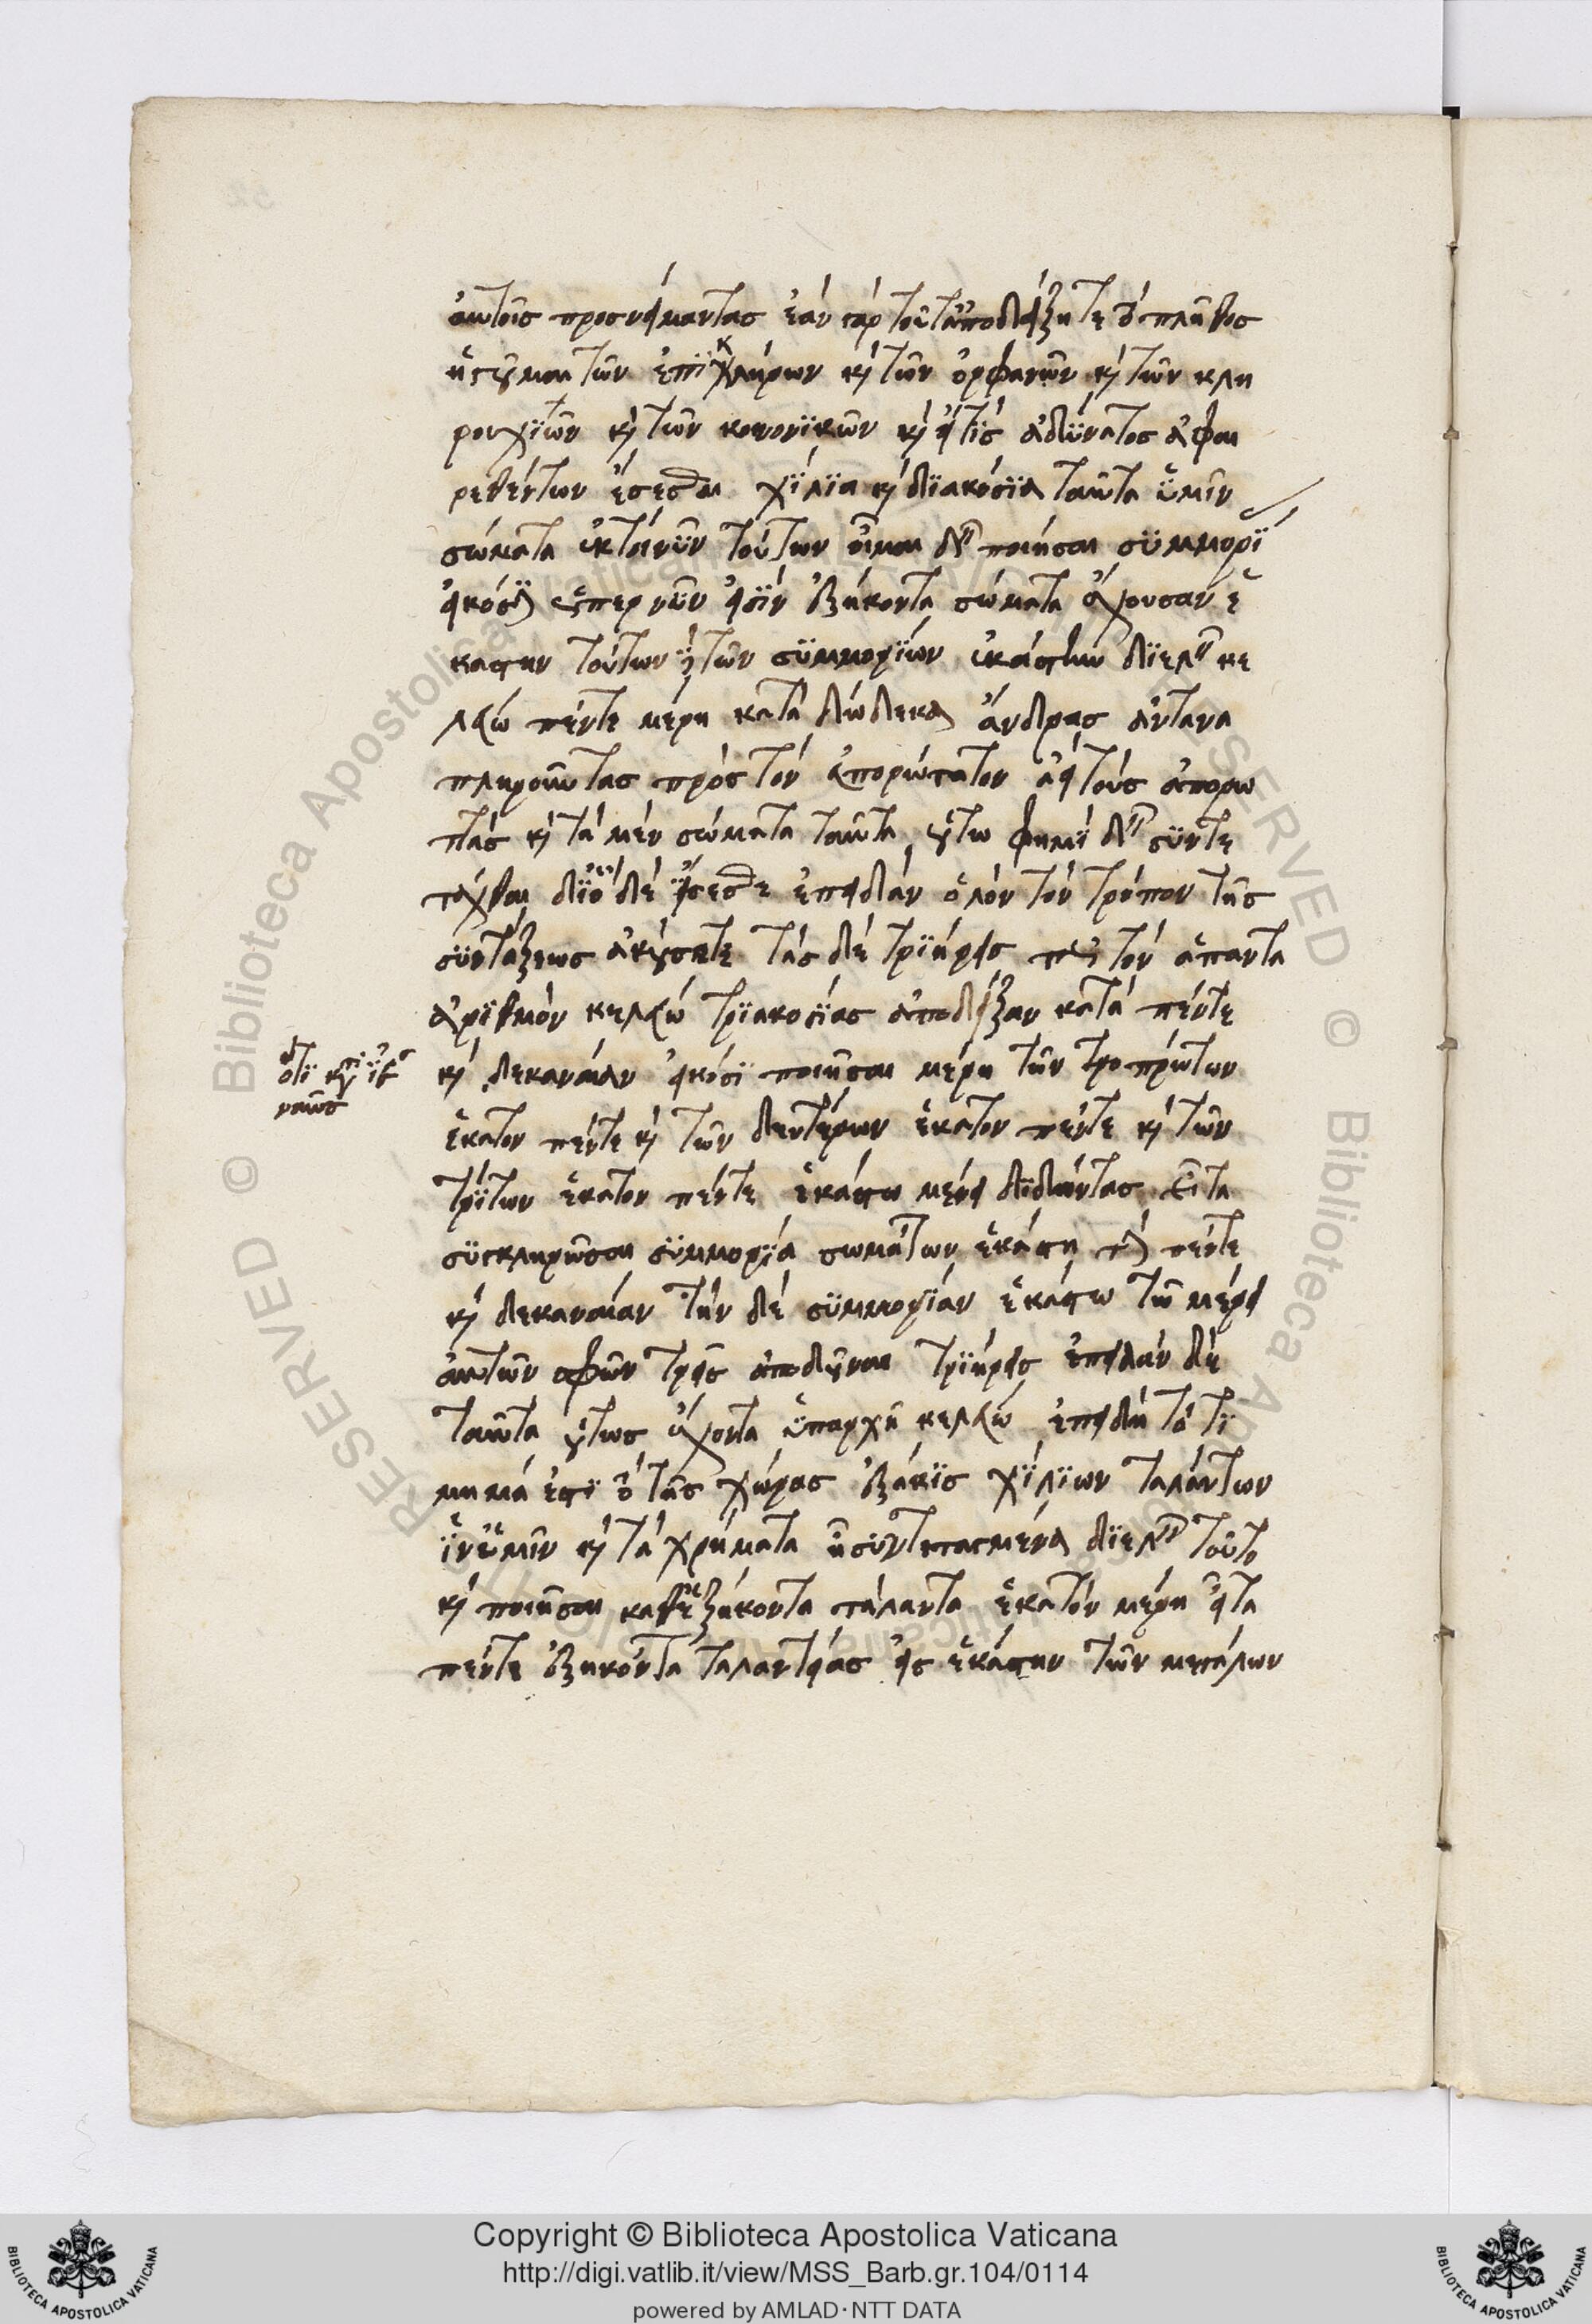 αὐτοῖς προσνείμαντας ἐὰν γὰρ τοῦτ ἀποδείξητε τὸ πλῆθος
ἡγοῦμαι τῶν ἐπικλήρων καὶ τῶν ὀρφανῶν καὶ τῶν κλη
ρουχϊῶν καὶ τῶν κοινονϊκῶν καὶ εἴ τϊς ἀδϋνατος ἀφαι
ρεθέντων ἔσεσθαι χΐλϊα καὶ δϊακόσϊα ταῦτα ὑμῖν
σώματα ἐκ τοίνϋν τούτων οἶμαι δεῖν ποιῆσαι σϋμμορϊ
εἰκόσϊ ὥσπερ νῦν εἰσὶν ἑξήκοντα σώματα ἔχουσαν ἑ
καστην τούτων δὲ τῶν σϋμμορϊῶν ἑκάστην δϊελεῖν κε
λεύω πέντε μέρη κατὰ δώδεκα ἄνδρας ἀντανα
πληροῦντας πρὸς τὸν ἀπορώτατον ἀεὶ τοὺς ἀπορω
τάς καὶ τὰ μὲν σώματα ταῦτα οὕτω φημῒ δεῖν σϋντε
τάχθαι δϊό δὲ εἴσεσθε ἐπειδὰν ὅλον τὸν τρόπον τῆς
σϋντάξεως ἀκούσητε τὰς δὲ τρϊήρεις πῶς τὸν ἅπαντα
ἀρϊθμὸν κελεύω τρϊακοσΐας ἀποδείξαν κατὰ πέντε
καὶ δεκαναΐαν εἰκόσϊ ποιῆσαι μέρη τῶν τρο πρώτων
ἑκατον πέντε καὶ τῶν δευτέρων ἑκατον πέντε καὶ τῶν
τρΐτων ἑκατον πέντε ἑκάστω μέρει δϊδόντας εἶτα
σϋγκληρῶσαι σϋμμορϊα σωμάτων ἑκάστη τὴν πέντε
καὶ δεκαναίαν τὴν δὲ σϋμμορϊαν ἑκάστω τῶ μέρει
αὐτῶν σφῶν τρεῖς ἀποδοῦναι τρϊήρεις ἐπειδὰν δὲ
ταῦτα οὕτως ἔχοντα ὑπαρχῆ κελεύω ἐπειδὴ τὸ τϊ
μημά ἐστϊ τὸ τῆς χώρας ἑξάκϊς χϊλΐων ταλάντων
ἵν ὑμῖν καὶ τὰ χρήματα ἦ σϋντεταγμένα δϊελεῖν τοῦτο
καὶ ποιῆσαι καθ ἑξήκοντα τάλαντα ἑκατὸν μέρη εἶτα
πέντε ἑξηκοντα ταλαντείας εἰς ἑκάστην τῶν μεγάλων